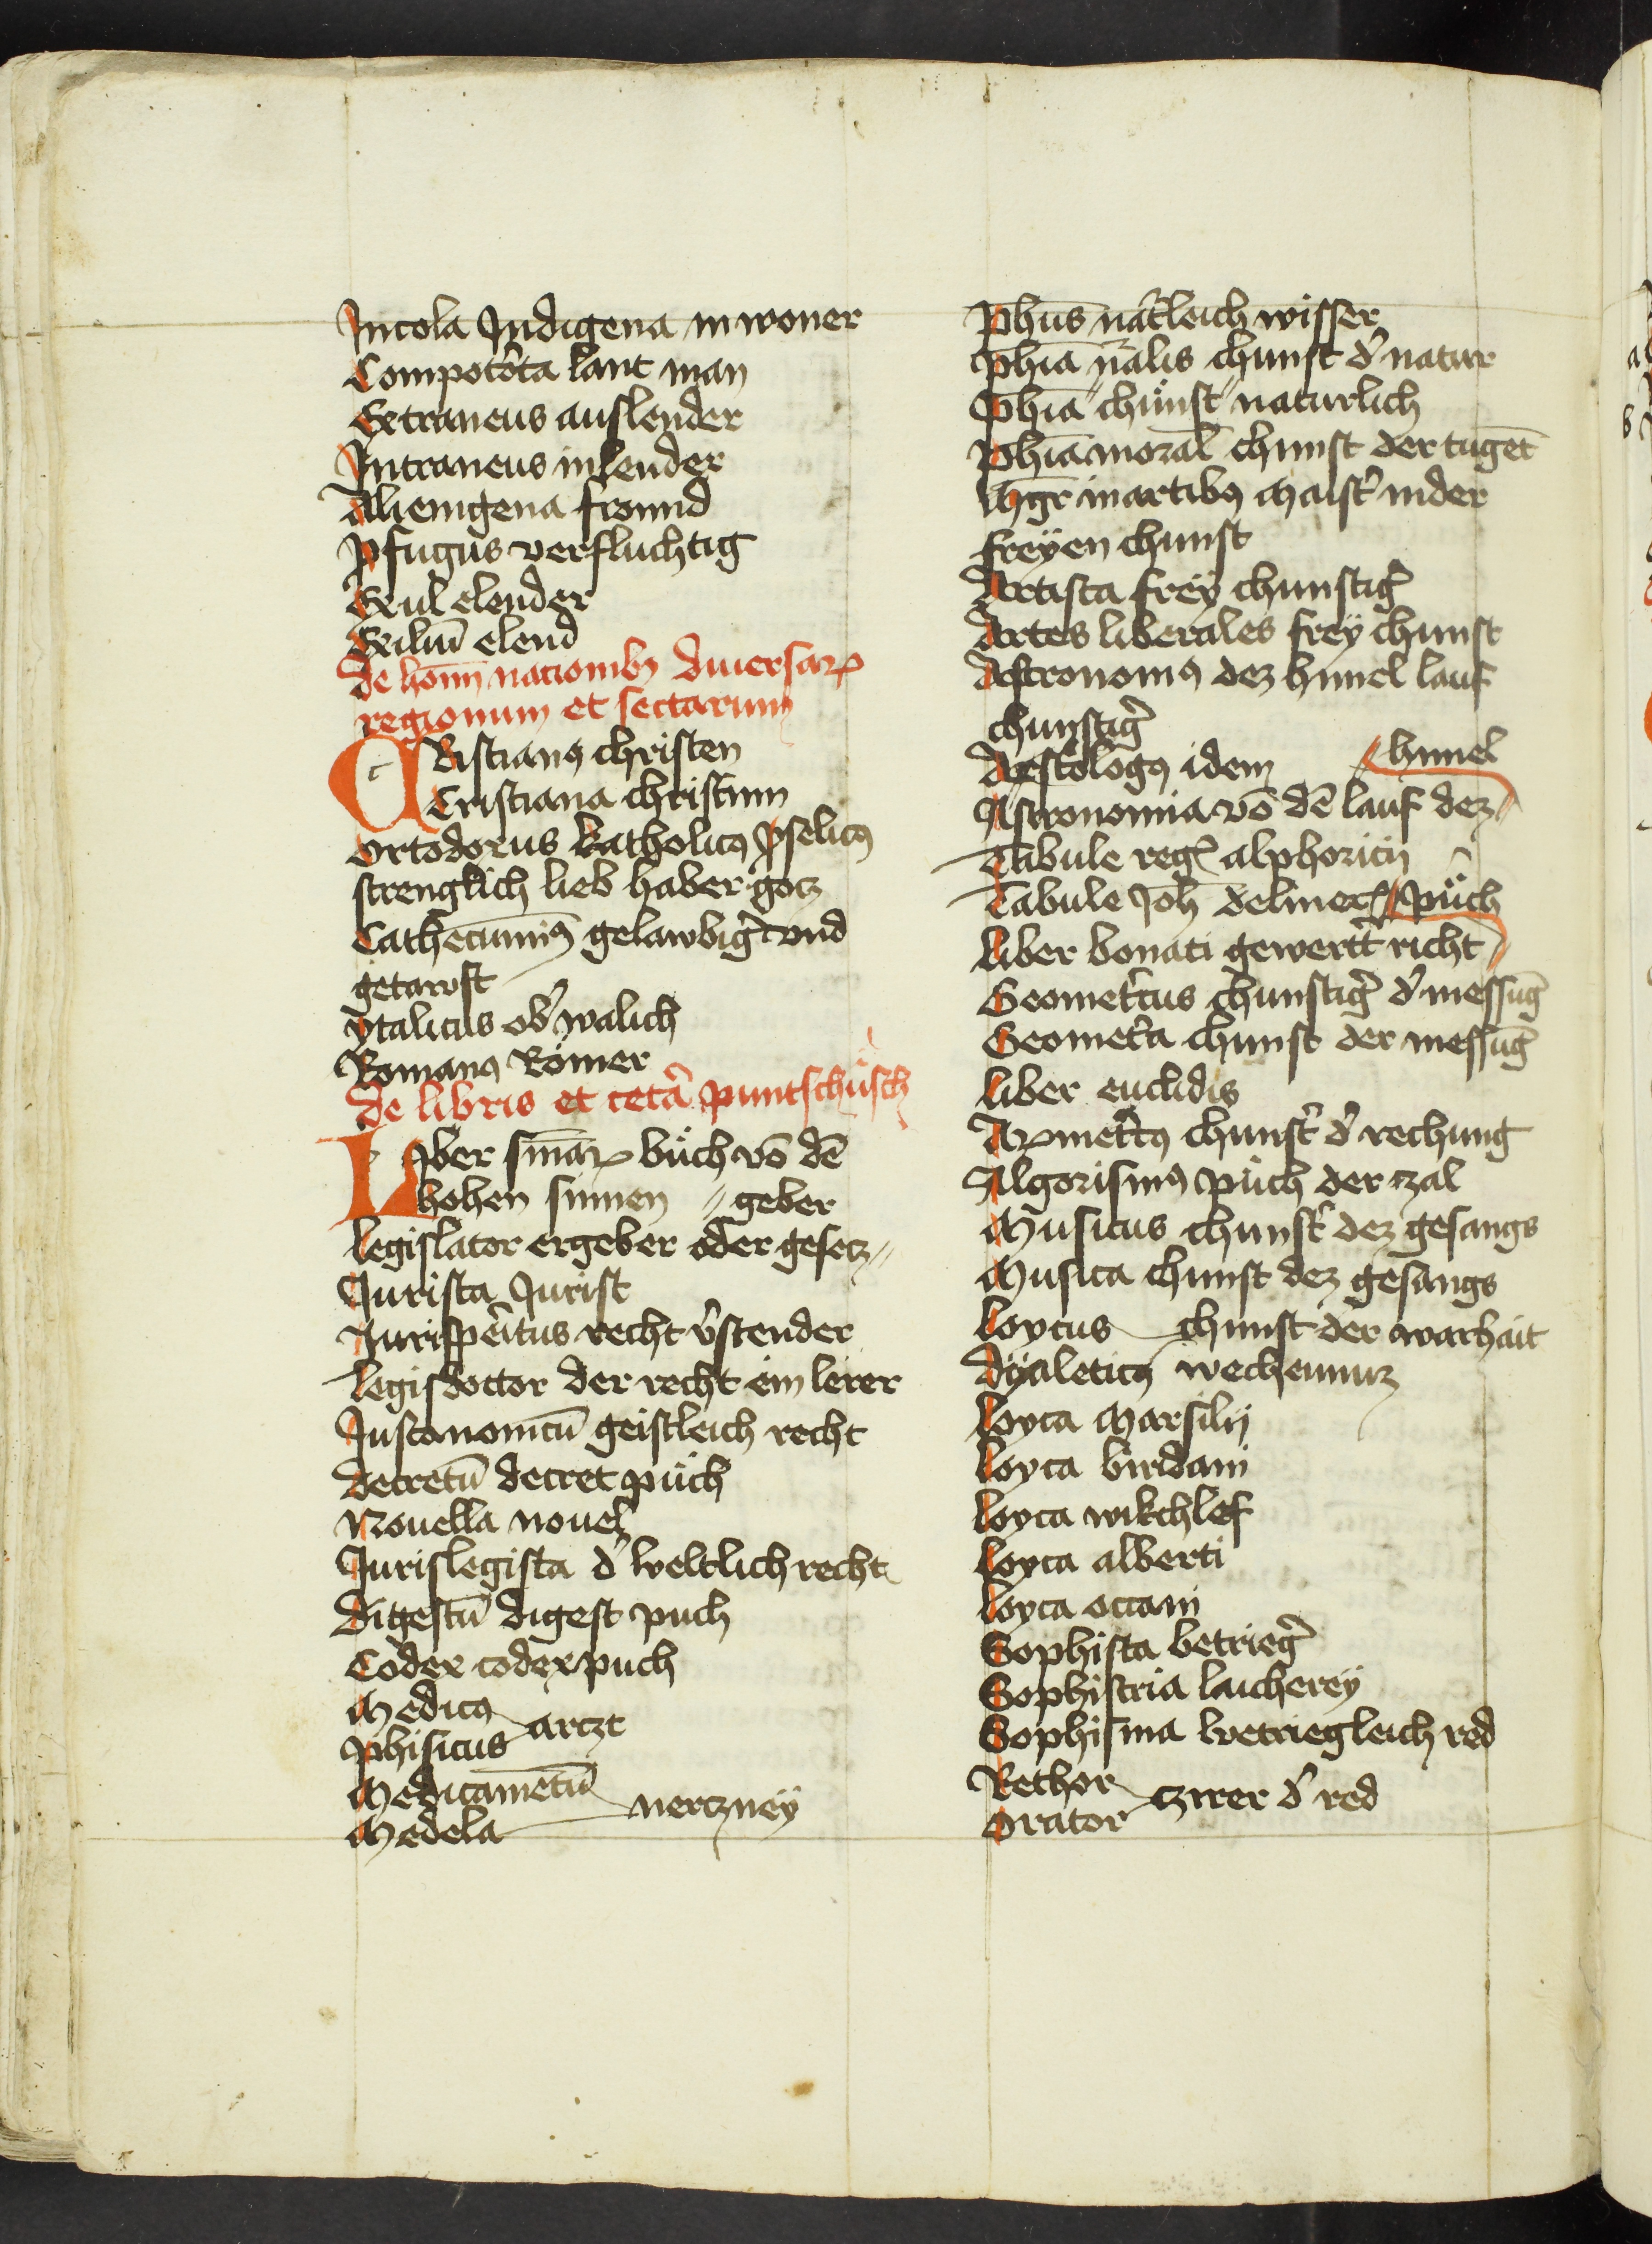 Incola Indigena inwoner
Compot͛ota lant man
Extraneus auslender
Intraneus inlender
Alienigena frömd
ꝓfugus verfluchtig
Exul elender
Exiliū elend
de hom̄ nacionibꝫ diuersaꝝ
regionum et sectarum
CRistianꝰ christen
Cristiana christinn
Ortodoxus katholicꝰ
strenglich lieb haber gocz
Cathecuminꝰ gelawbig͛ vnd
getawft
ytalicus od͛ walich
Romanꝰ Römer
de libris et cet͛a puntschüsch
LIber sm̄aꝝ büch vō dē
hohen sinnen〃 geber
legislator ergeber oder gesecz〃
Jurista Jurist
Jurisperitus recht v͛stender
legisdoctor der recht ein lerer
Juscanonicū geistleich recht
decretū decret püch
Nouella nouel
Jurislegista d͛ weltlich recht
digestū digest puch
Codex codex puch
Medicꝰ
Phisicus arczt
Medicamētū
Medela erczneÿ
ph̄us nat͛leich wisser
ph̄ia n͛alis chunst d͛ natur
ph̄ia chünst naturlich
ph̄ia moral̄ chunst der tugēt
Mḡr in artibꝰ Maist͛ in der
freÿen chunst
Artista freÿ chunstig͛
Artes liberales freÿ chunst
Astronomꝰ dez himel lauf
chunstig͛
Astrologꝰ idem 〃himel
Astronomia vō dē lauf dez〃
Tabule reg͛ alphoncii
Tabule Joh̄ 〃püch
liber bonati gewert͛ richt〃
Geomet͛cus chunstig͛ d͛ messūg
Geomet͛a chunst der messūg
liber euclidis
Aꝝmet͛cꝰ chunst͛ d͛ rechung
Algorismꝰ püch der zal
Musicus chunst͛ dez gesangs
Musica chunst dez gesangs
loycus chunst der warhait
dÿaleticꝰ
loyca Marsilij
loyca biridani
loyca wikchlef
loyca alberti
loyca occam
Sophista betrieg͛
Sophistria laichereÿ
Sophisma betriegleich red
Rethor
Orator czirer d͛ red